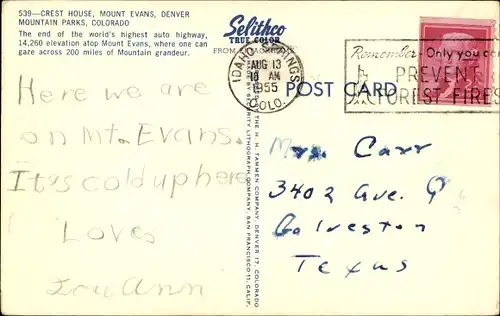 539—CREST HOUSE, MOUNT EVANS, DENVER
MOUNTAIN PARKS, COLORADO
The end of the world's highest auto highway,
14,260 elevation atop Mount Evans, where one can
gaze across 200 miles of Mountain grandeur.
Selithco
TRUE COLOR
IDAHO SPRINGS
AUG 13
10 AM
1955
COLO.
Remember- Only you can
PREVENT
FOREST FIRES
POST CARD
Here we are
on Mt. Evans.
It's cold up here
Loves
Lou Ann
Mrs. Carr
3402 Ave. Q
Galveston
Texas
BY SECURITY LITHOGRAPH COMPANY, SAN FRANCISCO 11, CALIF.
THE H. H. TAMMEN COMPANY, DENVER 17, COLORADO